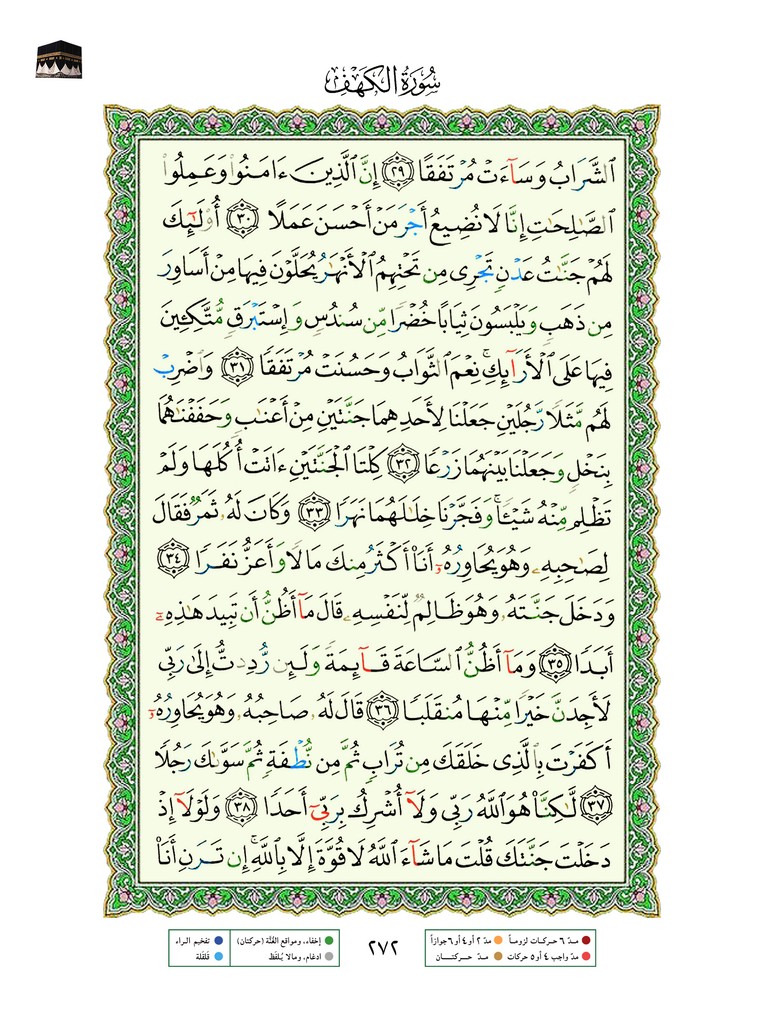 سُورَةُ الكَهْفِ
ٱلشَّرَابُ وَسَآءَتْ مُرْتَفَقًا ٢٩ إِنَّ ٱلَّذِينَ ءَامَنُوا۟ وَعَمِلُوا۟
ٱلصَّـٰلِحَـٰتِ إِنَّا لَا نُضِيعُ أَجْرَ مَنْ أَحْسَنَ عَمَلًا ٣٠ أُو۟لَـٰٓئِكَ
لَهُمْ جَنَّـٰتُ عَدْنٍ تَجْرِى مِن تَحْتِهِمُ ٱلْأَنْهَـٰرُ يُحَلَّوْنَ فِيهَا مِنْ أَسَاوِرَ
مِن ذَهَبٍ وَيَلْبَسُونَ ثِيَابًا خُضْرًا مِّن سُندُسٍ وَإِسْتَبْرَقٍ مُّتَّكِـِٔينَ
فِيهَا عَلَى ٱلْأَرَآئِكِ ۚ نِعْمَ ٱلثَّوَابُ وَحَسُنَتْ مُرْتَفَقًا ٣١ وَٱضْرِبْ
لَهُم مَّثَلًا رَّجُلَيْنِ جَعَلْنَا لِأَحَدِهِمَا جَنَّتَيْنِ مِنْ أَعْنَـٰبٍ وَحَفَفْنَـٰهُمَا
بِنَخْلٍ وَجَعَلْنَا بَيْنَهُمَا زَرْعًا ٣٢ كِلْتَا ٱلْجَنَّتَيْنِ ءَاتَتْ أُكُلَهَا وَلَمْ
تَظْلِم مِّنْهُ شَيْـًٔا ۚ وَفَجَّرْنَا خِلَـٰلَهُمَا نَهَرًا ٣٣ وَكَانَ لَهُۥ ثَمَرٌ فَقَالَ
لِصَـٰحِبِهِۦ وَهُوَ يُحَاوِرُهُۥٓ أَنَا۠ أَكْثَرُ مِنكَ مَالًا وَأَعَزُّ نَفَرًا ٣٤
وَدَخَلَ جَنَّتَهُۥ وَهُوَ ظَالِمٌ لِّنَفْسِهِۦ قَالَ مَآ أَظُنُّ أَن تَبِيدَ هَـٰذِهِۦٓ
أَبَدًا ٣٥ وَمَآ أَظُنُّ ٱلسَّاعَةَ قَآئِمَةً وَلَئِن رُّدِدتُّ إِلَىٰ رَبِّى
لَأَجِدَنَّ خَيْرًا مِّنْهَا مُنقَلَبًا ٣٦ قَالَ لَهُۥ صَاحِبُهُۥ وَهُوَ يُحَاوِرُهُۥٓ
أَكَفَرْتَ بِٱلَّذِى خَلَقَكَ مِن تُرَابٍ ثُمَّ مِن نُّطْفَةٍ ثُمَّ سَوَّىٰكَ رَجُلًا
٣٧ لَّـٰكِنَّا۠ هُوَ ٱللَّهُ رَبِّى وَلَآ أُشْرِكُ بِرَبِّىٓ أَحَدًا ٣٨ وَلَوْلَآ إِذْ
دَخَلْتَ جَنَّتَكَ قُلْتَ مَا شَآءَ ٱللَّهُ لَا قُوَّةَ إِلَّا بِٱللَّهِ ۚ إِن تَرَنِ أَنَا۠
مدّ ٦ حركـات لزومـاً مدّ ٢ أو ٤ أو ٦ جوازاً
مدّ واجب ٤ أو ٥ حركات مدّ حـــركتــــان
٢٧٢
إخفاء، ومواقع الغُنَّة (حركتان) تفخيم الراء
ادغام، ومالا يُلفَظ قلقلة